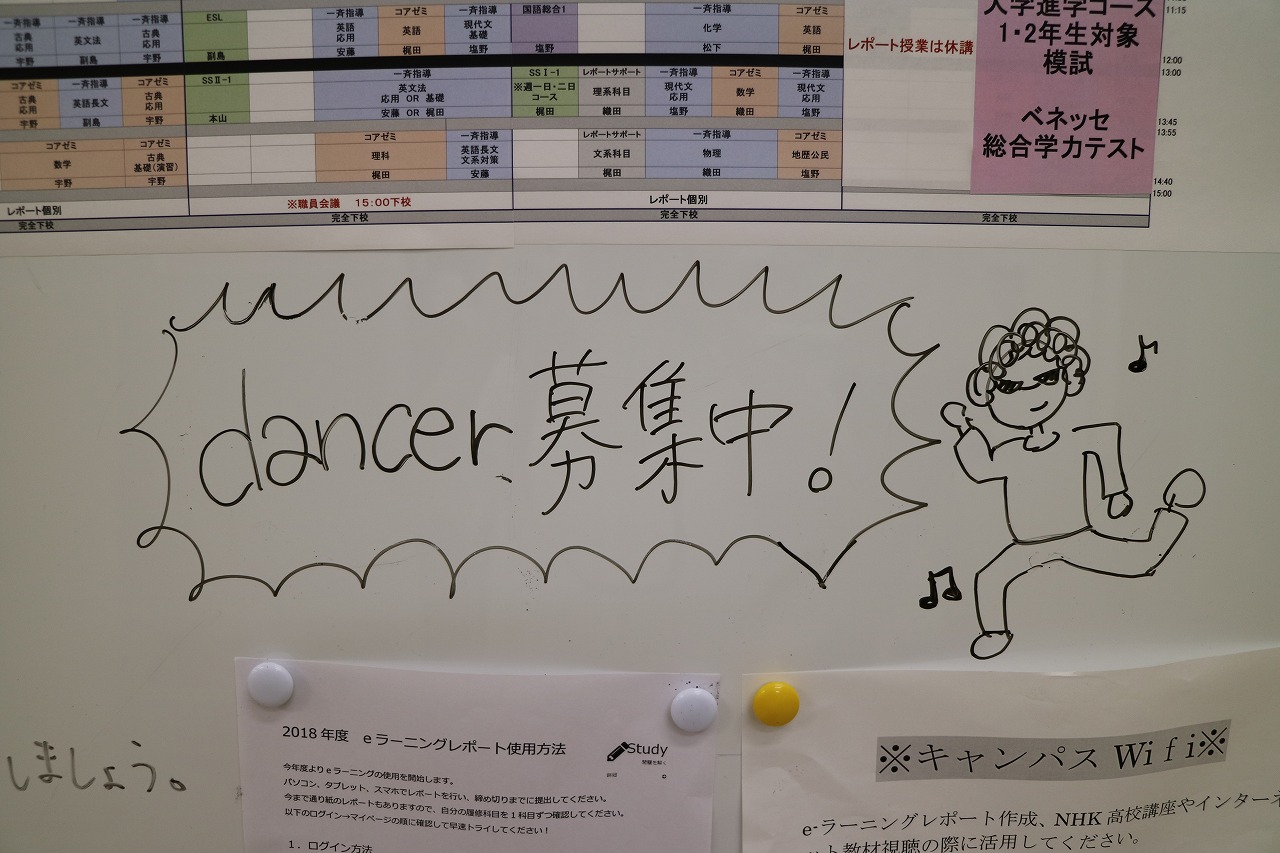 一斉指導 一斉指導 一斉指導 ESL 一斉指導 コアゼミ 一斉指導 国語総合1 一斉指導 コアゼミ
古典応用 英文法 古典応用 英語応用 英語 現代文基礎 化学 英語
宇野 副島 宇野 副島 安藤 梶田 塩野 塩野 松下 梶田
レポート授業は休講
入学進学コース
1・2年生対象
模試
ベネッセ
総合学力テスト
11:15
12:00
13:00
13:45
13:55
14:40
15:00
コアゼミ 一斉指導 コアゼミ SSⅡ-1 一斉指導 SSⅠ-1 レポートサポート 一斉指導 コアゼミ 一斉指導
古典応用 英語長文 古典応用 英文法 応用 OR 基礎 ※週一日・二日コース 理系科目 現代文応用 数学 現代文応用
宇野 副島 宇野 本山 安藤 OR 梶田 梶田 織田 塩野 織田 塩野
コアゼミ コアゼミ コアゼミ 一斉指導 レポートサポート 一斉指導 コアゼミ
数学 古典基礎(演習) 理科 英語長文文系対策 文系科目 物理 地歴公民
宇野 宇野 梶田 安藤 梶田 織田 塩野
レポート個別 ※職員会議 15:00下校 レポート個別
完全下校 完全下校 完全下校 完全下校
dancer募集中!
しましょう。
2018年度 eラーニングレポート使用方法
Study
今年度よりeラーニングの使用を開始します。
パソコン、タブレット、スマホでレポートを行い、締め切りまでに提出してください。
今まで通り紙のレポートもありますので、自分の履修科目を1科目ずつ確認してください。
以下のログイン→マイページの順に確認して早速トライしてください!
1.ログイン方法
※キャンパスWifi※
e-ラーニングレポート作成、NHK高校講座やインターネ
ット教材視聴の際に活用してください。